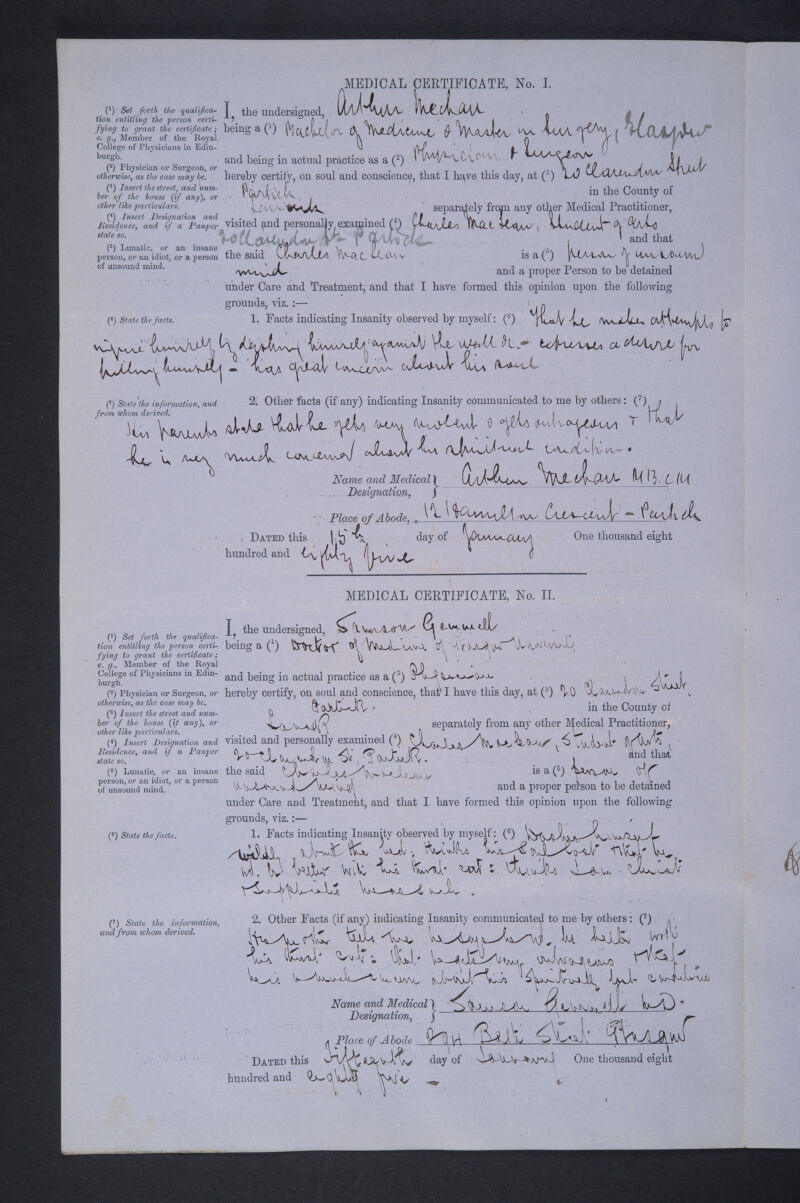 MEDICAL CERTIFICATE, No. I.
(¹) Set forth the qualifica-
tion entitling the person certi-
fying to grant the certificate;
e. g., Member of the Royal
College of Physicians in Edin-
burgh.
(²) Physician or Surgeon, or
otherwise, as the case may be.
(³) Insert the street, and num-
ber of the house (if any), or
other like particulars.
(⁴) Insert Designation and
Residence, and if a Pauper
state so.
(⁵) Lunatic, or an insane
person, or an idiot, or a person
of unsound mind.
I, the undersigned, Arthur Mechan
being a (¹) Bachelor of Medicine & Master in Surgery, Glasgow
and being in actual practice as a (²) Physician & Surgeon
hereby certify, on soul and conscience, that I have this day, at (³) 20 Clarendon Street
Partick in the County of
Lanark separately from any other Medical Practitioner,
visited and personally examined (⁴) Charles MacLean, Student of Arts
20 Clarendon St Partick and that
the said Charles MacLean is a (⁵) person of unsound
mind and a proper Person to be detained
under Care and Treatment, and that I have formed this opinion upon the following
grounds, viz. :—
(⁶) State the facts.
1. Facts indicating Insanity observed by myself: (⁶) That he makes attempts to
injure himself by dashing himself against the wall &c - expresses a desire for
killing himself - has great concern about his soul
(⁷) State the information, and
from whom derived.
2. Other facts (if any) indicating Insanity communicated to me by others: (⁷)
His parents state that he gets very violent & gets outrageous & that
he is very much concerned about his spiritual condition.
Name and Medical Designation, Arthur Mechan MB. CM
Place of Abode, 12 Hamilton Crescent - Partick
DATED this 15th day of January One thousand eight
hundred and eighty five
MEDICAL CERTIFICATE, No. II.
(¹) Set forth the qualifica-
tion entitling the person certi-
fying to grant the certificate;
e. g., Member of the Royal
College of Physicians in Edin-
burgh.
(²) Physician or Surgeon, or
otherwise, as the case may be.
(³) Insert the street and num-
ber of the house (if any), or
other like particulars.
(⁴) Insert Designation and
Residence, and if a Pauper
state so.
(⁵) Lunatic, or an insane
person, or an idiot, or a person
of unsound mind.
I, the undersigned, Samson Gemmell
being a (¹) Doctor of Medicine of Glasgow University
and being in actual practice as a (²) Physician
hereby certify, on soul and conscience, that I have this day, at (³) 20 Clarendon Street,
Partick. in the County of
Lanark separately from any other Medical Practitioner,
visited and personally examined (⁴) Charles MacLean, Student of Arts,
20 Clarendon St, Partick. and that
the said Charles MacLean is a (⁵) person of
unsound mind and a proper person to be detained
under Care and Treatment, and that I have formed this opinion upon the following
grounds, viz. :—
(⁶) State the facts.
1. Facts indicating Insanity observed by myself: (⁶) Dashes himself
wildly about the bed; thinks his soul lost & that he
wd. be better with his throat cut: thinks I am Christ
& me as such.
(⁷) State the information,
and from whom derived.
2. Other Facts (if any) indicating Insanity communicated to me by others: (⁷)
His mother tells me he says he wd. be better with
his throat cut: that he acts very outrageous & that
he is in much concern about his spiritually lost condition
Name and Medical Designation, Samson Gemmell M.D.
Place of Abode Bath Street Glasgow
DATED this Fifteenth day of January One thousand eight
hundred and eighty five